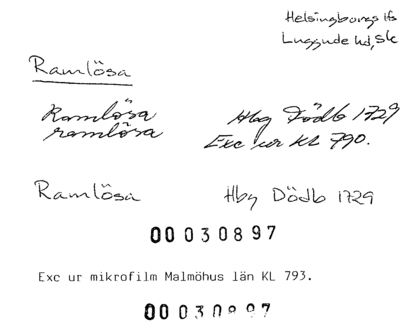 Helsingborgs lfs
Luggude hd, Sk
Ramlösa
Ramlösa Hbg Dödb 1729
ramlösa Exc ur KL 790.
Ramlösa Hbg Dödb 1729
00 030897
Exc ur mikrofilm Malmöhus län KL 793.
00 030897